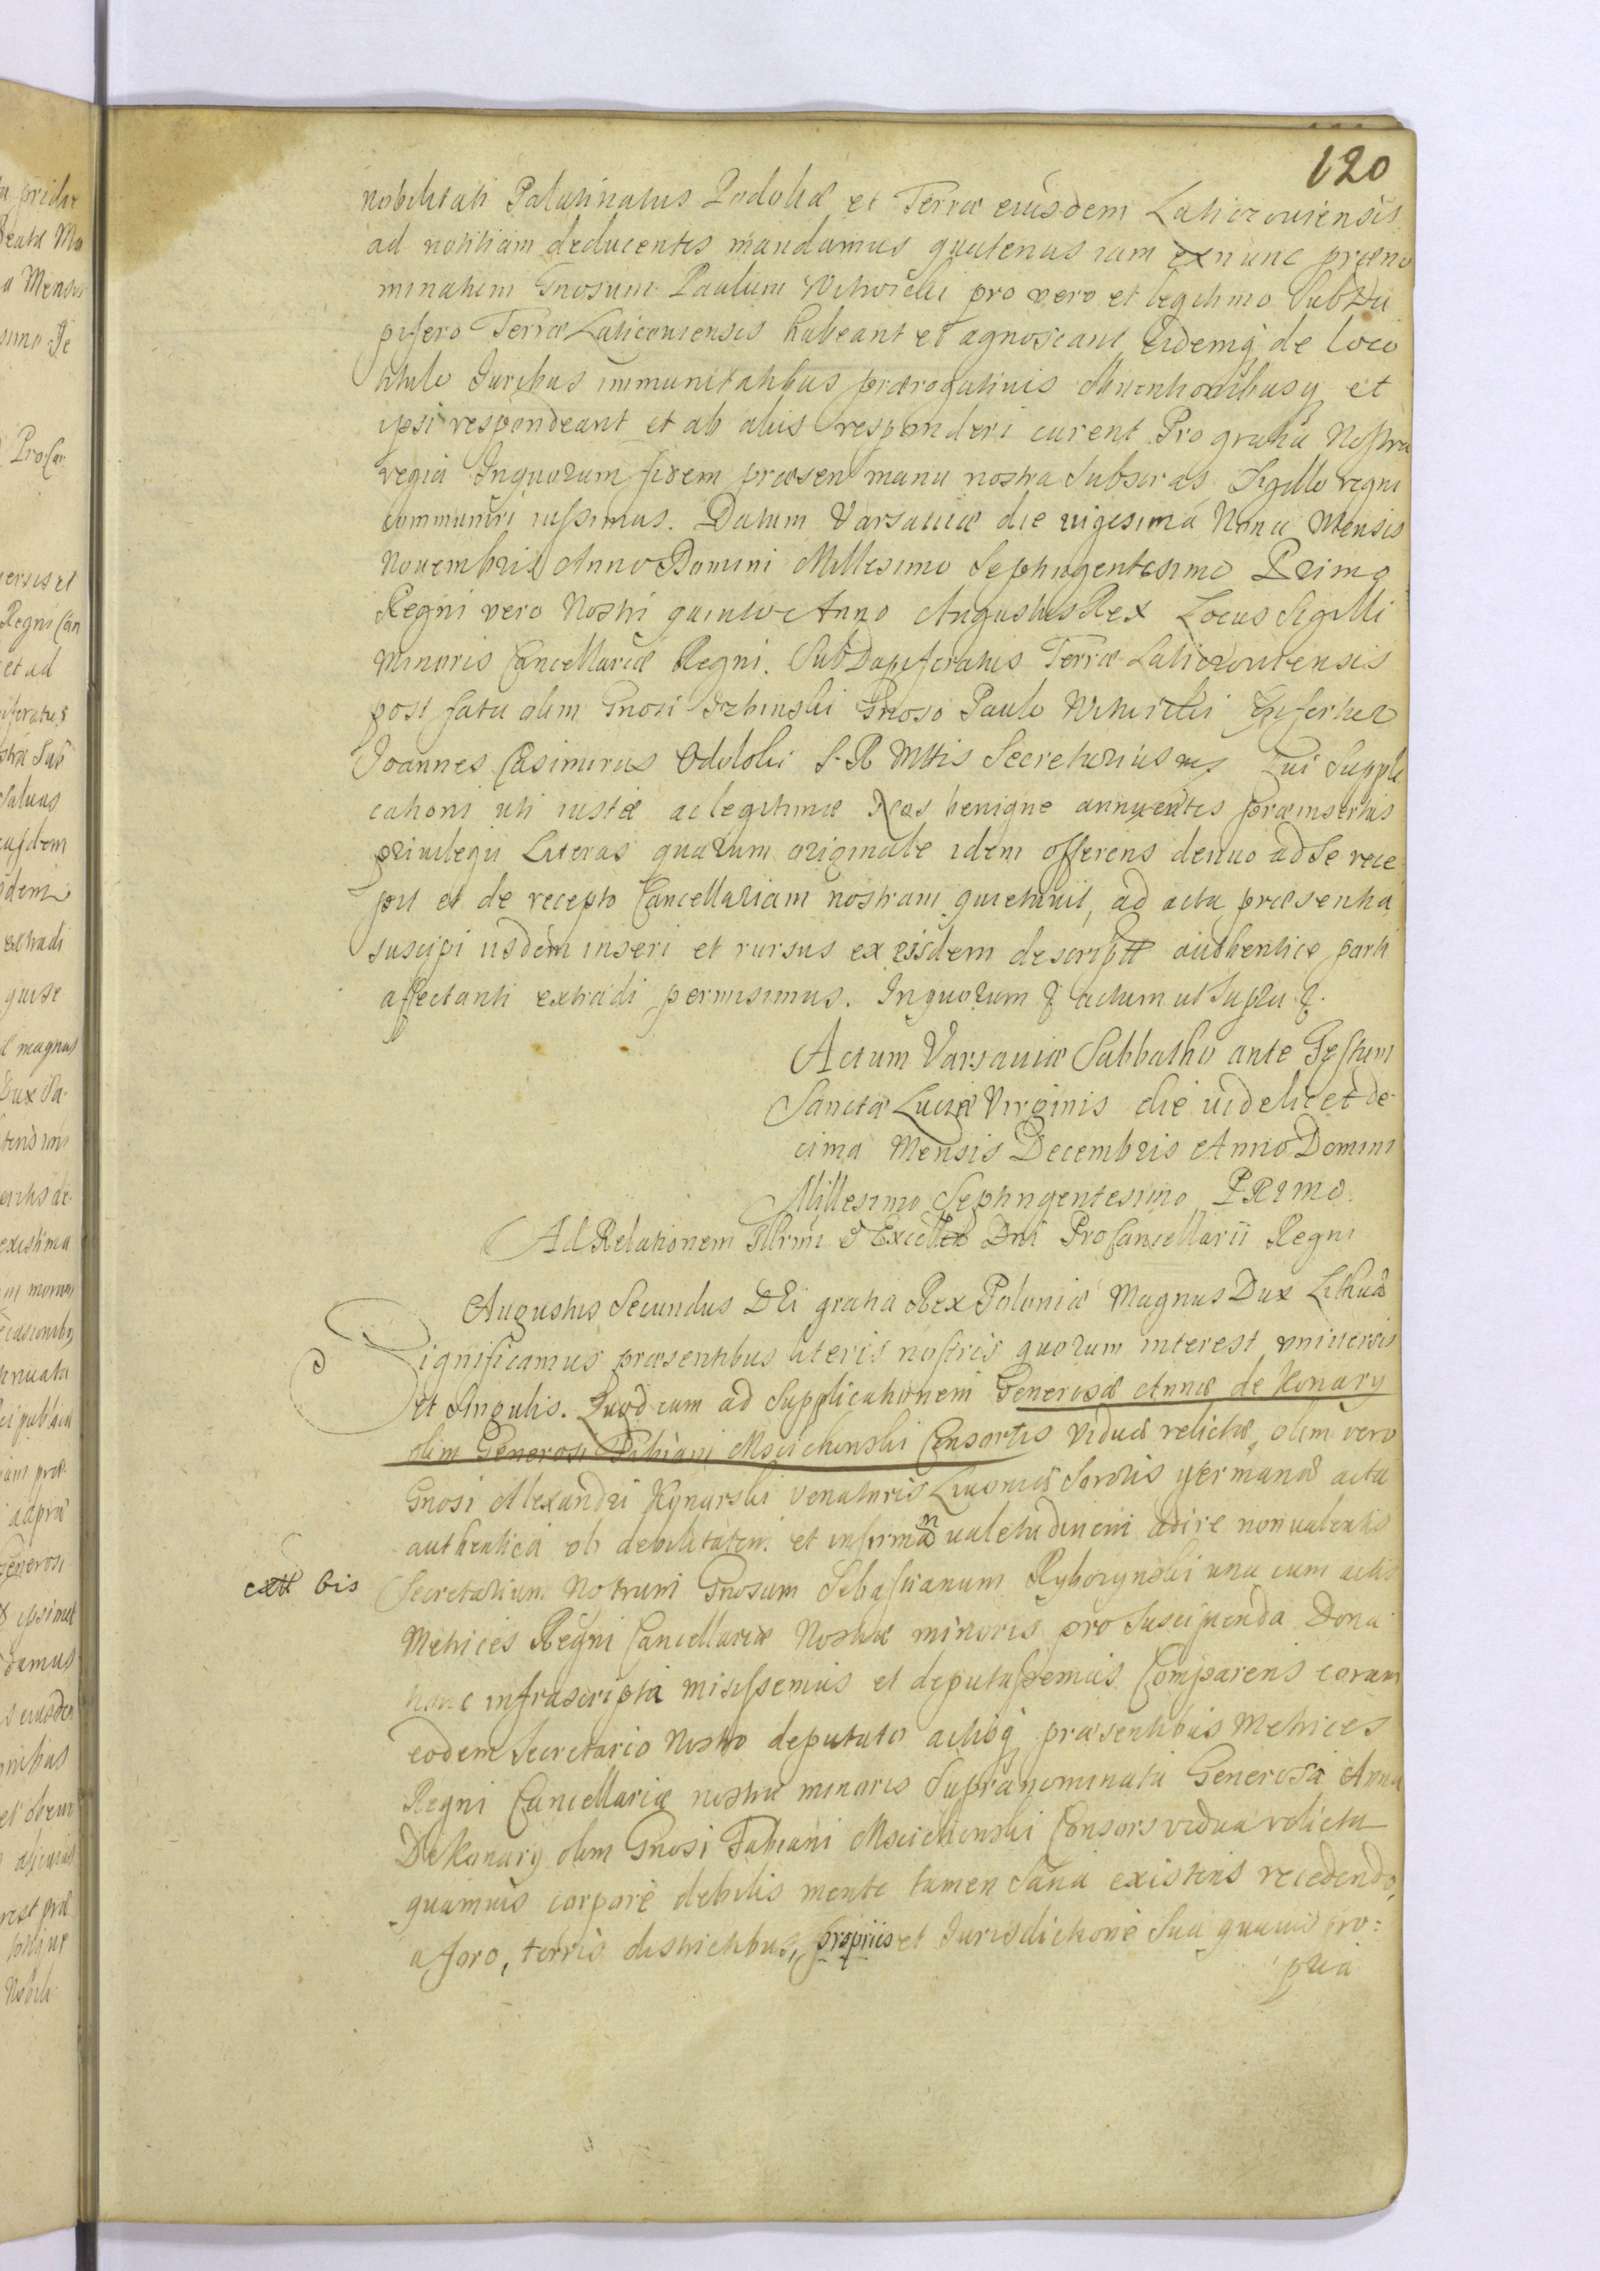 120
nobilitati Palatinatus Podoliæ et Terræ eiusdem Laticzouiensis
ad notitiam deducentes mandamus quatenus iam exnunc præno
minatum Gnosum Paulum Witwicki pro vero et legitimo SubDa
pifero Terræ Laticouiensis habeant et agnoscant Eidemq de loco
titulo Juribus immunitatibus prærogatiuis obuentionibusq et
ipsi respondeant et ab aliis responderi curent Pro gratia Nostra
regia Inquorum fidem præsen manu nostra Subscras Sigillo regni
communiri iussimus. Datum Varsauiæ die vigesima Nona Mensis
Nouembris Anno Domini Millesimo Septingentesimo Primo
Regni vero Nostri quinto Anno Augustus Rex Locus Sigilli
Minoris Cancellariæ Regni. SubDapiferatus Terræ Laticzouiensis
post fata olim Gnosi Gnoso Paulo Witwicki confertur
Joannes Casimirus S. R. Mttis Secretarius mp Cui Suppli
cationi uti iustæ ac legitimæ Nos benigne annuentes præinsertas
priuilegii Literas quarum originale idem offerens denuo ad Se rece
pit et de recepto Cancellariam nostram quietauit, ad acta præsentia
suscipi iisdem inseri et rursus ex eisdem descriptt authentice parti
affectanti extradi permisimus. Inquorum & actum ut Supra &.
Actum Varsauiæ Sabbatho ante Festum
Sanctæ Luciæ Virginis die uidelicet de
cima Mensis Decembris Anno Domini
Millesimo Septingentesimo PRIMO.
Ad Relationem Illrmi & Excellmi Dni ProCancellarii Regni
Augustus Secundus DEi gratia Rex Poloniæ Magnus Dux Lithuã
Significamus præsentibus literis nostris quorum interest vniuersis
et Singulis. Quod cum ad Supplicationem Generosæ Annæ de Konary
olim Generosi Fabiani Mscichowski Consortis Viduæ relictæ, olim vero
Gnosi Alexandri Konarski Venatoris Sororis germanæ acta
authentica ob debilitatem et infirmã ualetudinem adire non ualentis
extt bis
Secretarium Nostrum Gnosum Sebastianum Rybczynski una cum actis
Metrices Regni Cancellariæ Nostræ minoris pro Suscipienda Dona
infrascripta misissemus et deputassemus Comparens coram
eodem Secretario Nostro deputato actisq præsentibus Metrices
Regni Cancellariæ nostræ minoris Supranominata Generosa Anna
De Konary olim Gnosi Fabiani Mscichowski Consors vidua relicta
quamuis corpore debilis mente tamen Sana existens recedendo,
a foro, terris districtibus, propriis et Jurisdictione Sua quauis pro:
pria